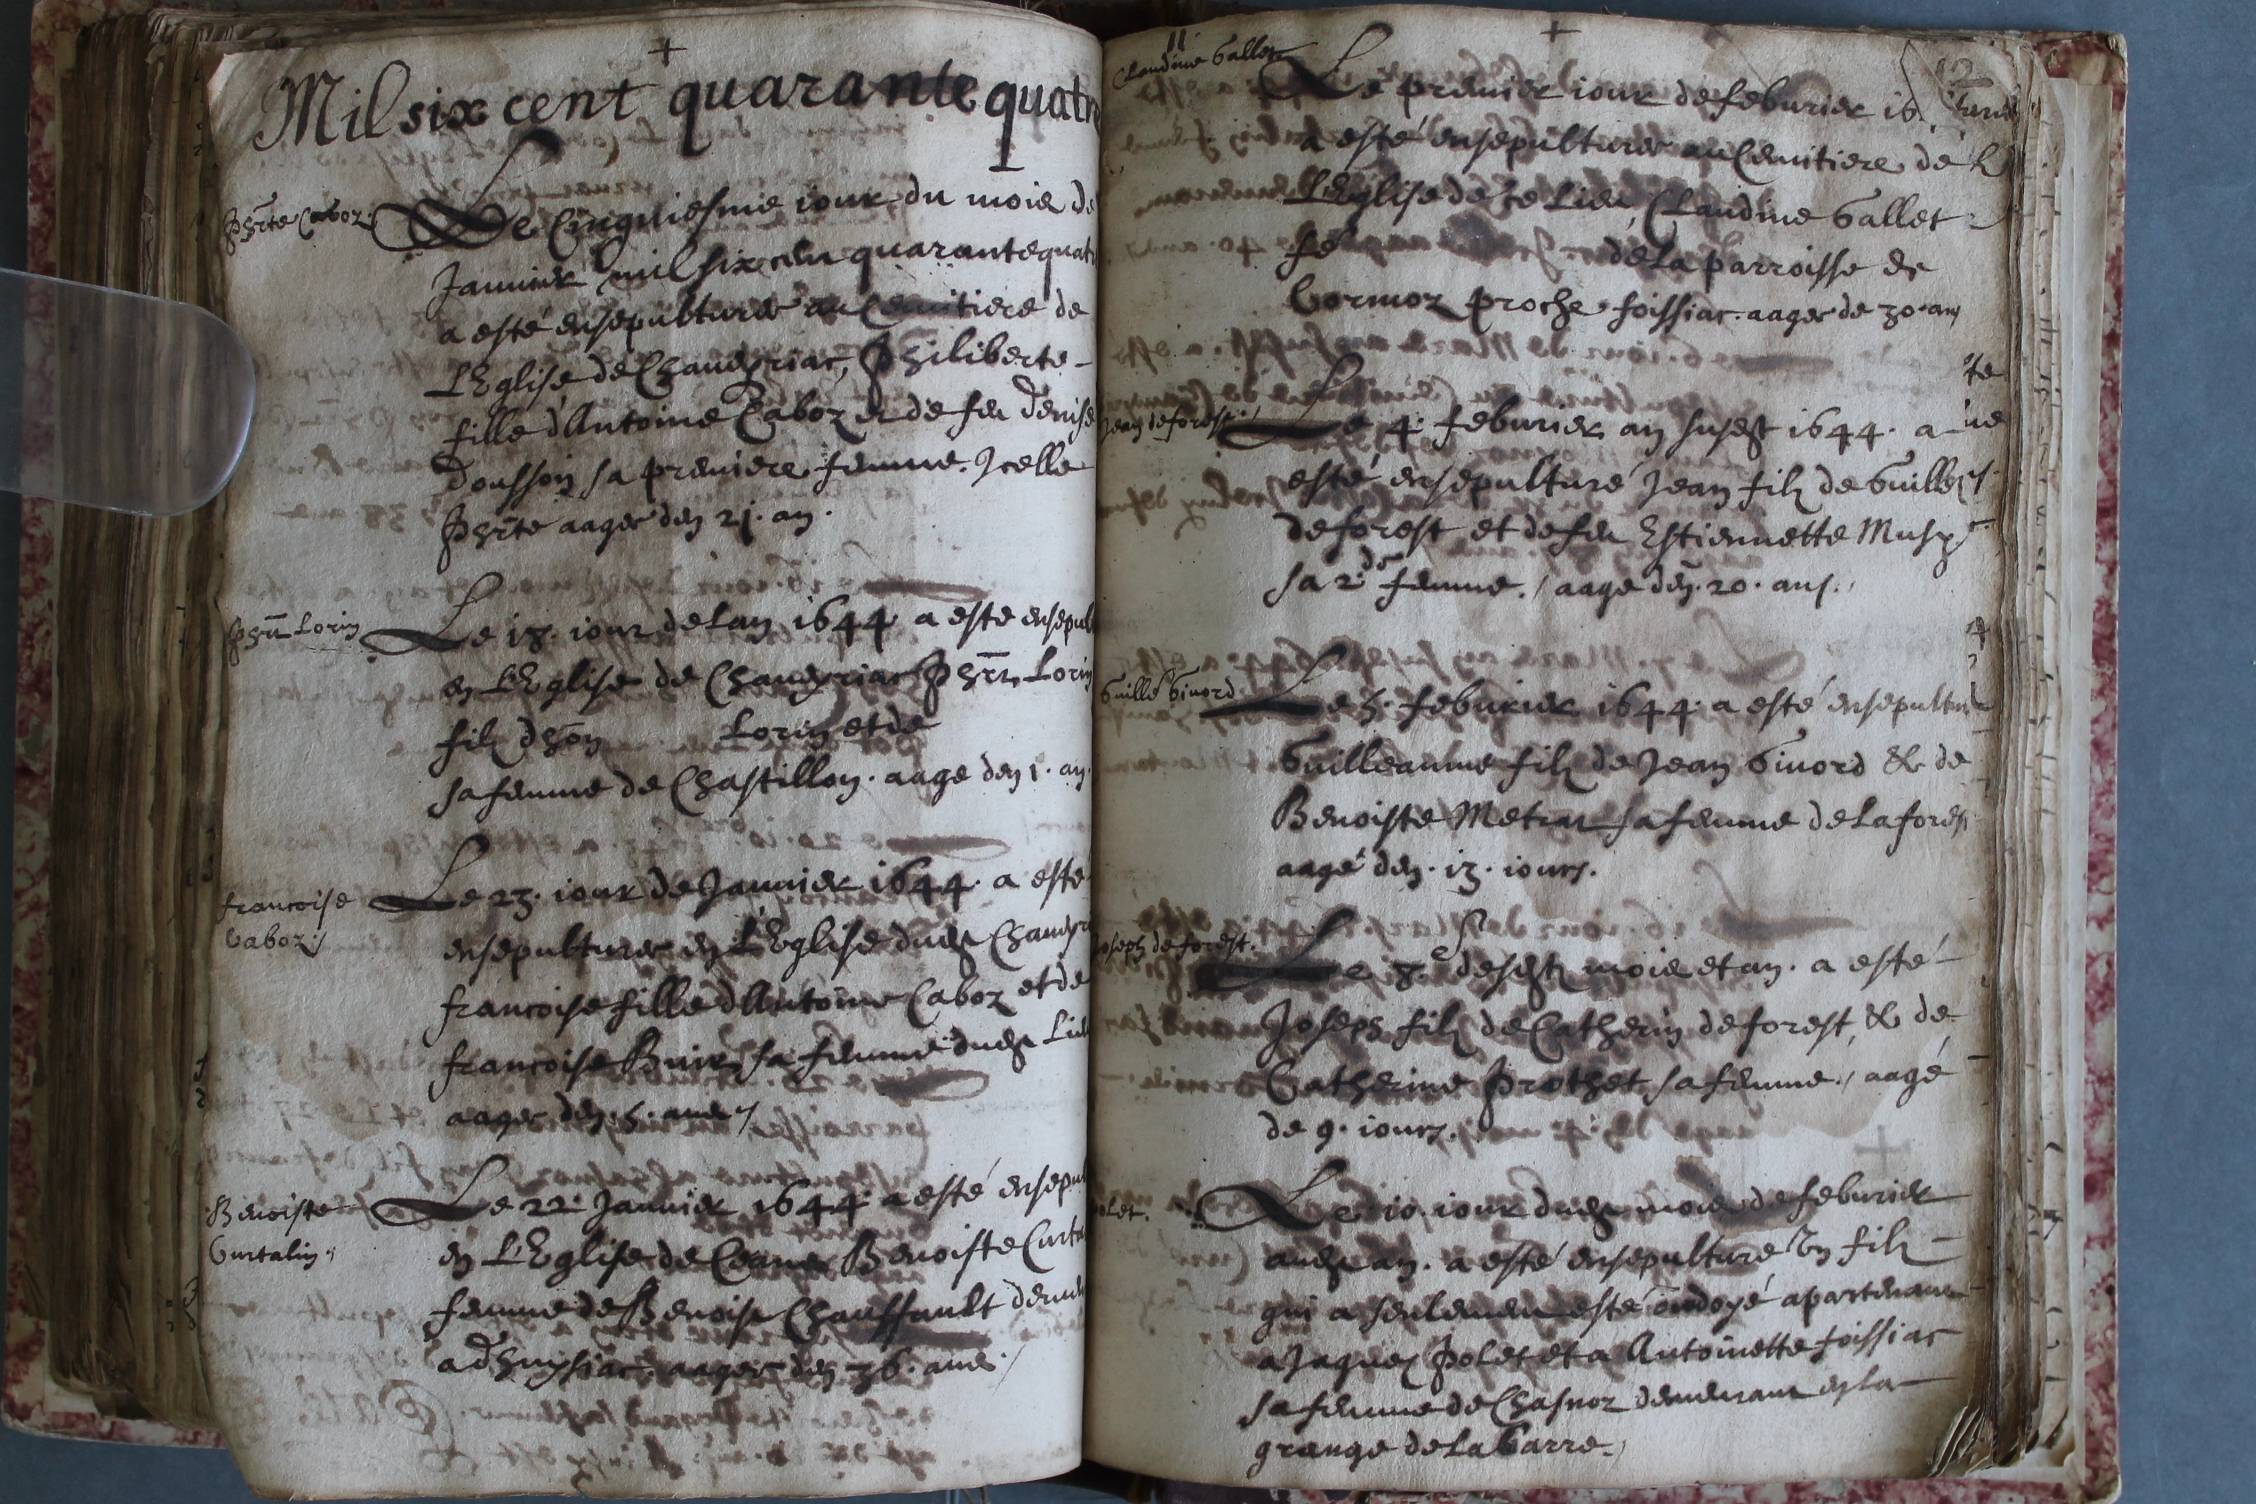 Mil six cent quarante quatre
Phrte Caboz
Le Cinquiesme iour du mois de
Januier mil six cen quarante quatr
a esté ensepulturée au Cemitiere de
L'Eglise de Chaueyriac, Philiberte
fille d'Antoine Caboz et de feu denise
Dousson sa premiere femme. Jcelle
Phrte aagee den 21. an.
Phrt Lorin
Le 18. iour de lan 1644 a este ensepul
en L'Eglise de Chaueyriac Phrt Lorin
filz dhon Lorin et de
sa femme de Chastillon. aage den 1. an.
francoise
Caboz
Le 23. iour de Januier 1644. a esté
ensepulturee en L'Eglise dudt Chaueyr
francoise fille d'Antoine Caboz et de
francoise Buir sa femme dudt Lieu
aagee den. 5. ans
Benoiste
Curtalin
Le 22. Januier 1644. a esté ensepul
en L'Eglise de Crans Benoiste Curta
femme de Benoist Chauffault demeu
a dhuysiac. aagee den 36. ans
11
12
Claudine Gallet
Le premier iour de feburier 16
a esté ensepulturee au Cemitiere de
L'Eglise de ce Lieu, Claudine Gallet
fe de La parroisse de
Cormoz proche foissiac. aagee de 30. ans
Jean deforest
Le 4. feburier an susdt 1644. a
esté ensepulturé Jean filz de Guille
deforest et de feu Estiennette
sa 2.de femme. / aage den. 20. ans.
Guille Giuord
Le 5. feburier 1644. a esté ensepultur
Guilleaume filz de Jean Giuord & de
Benoiste Metrat sa femme de Laforest
aagé den. 13. iours.
Joseph deforest.
Le 8.e desdt mois et an. a esté
Joseph filz de Catherin deforest, & de
Catherine Prothet sa femme. / aagé
de 9. iours.
Polet.
Le 10. iour dudt mois de feburier
audt an. a esté ensepulturé Vn filz
qui a seulement esté ondoyé apartenant
a Jaques Polet et a Antoinette foissiac
sa femme de Chasnoz demeurant en la
grange de La barre.